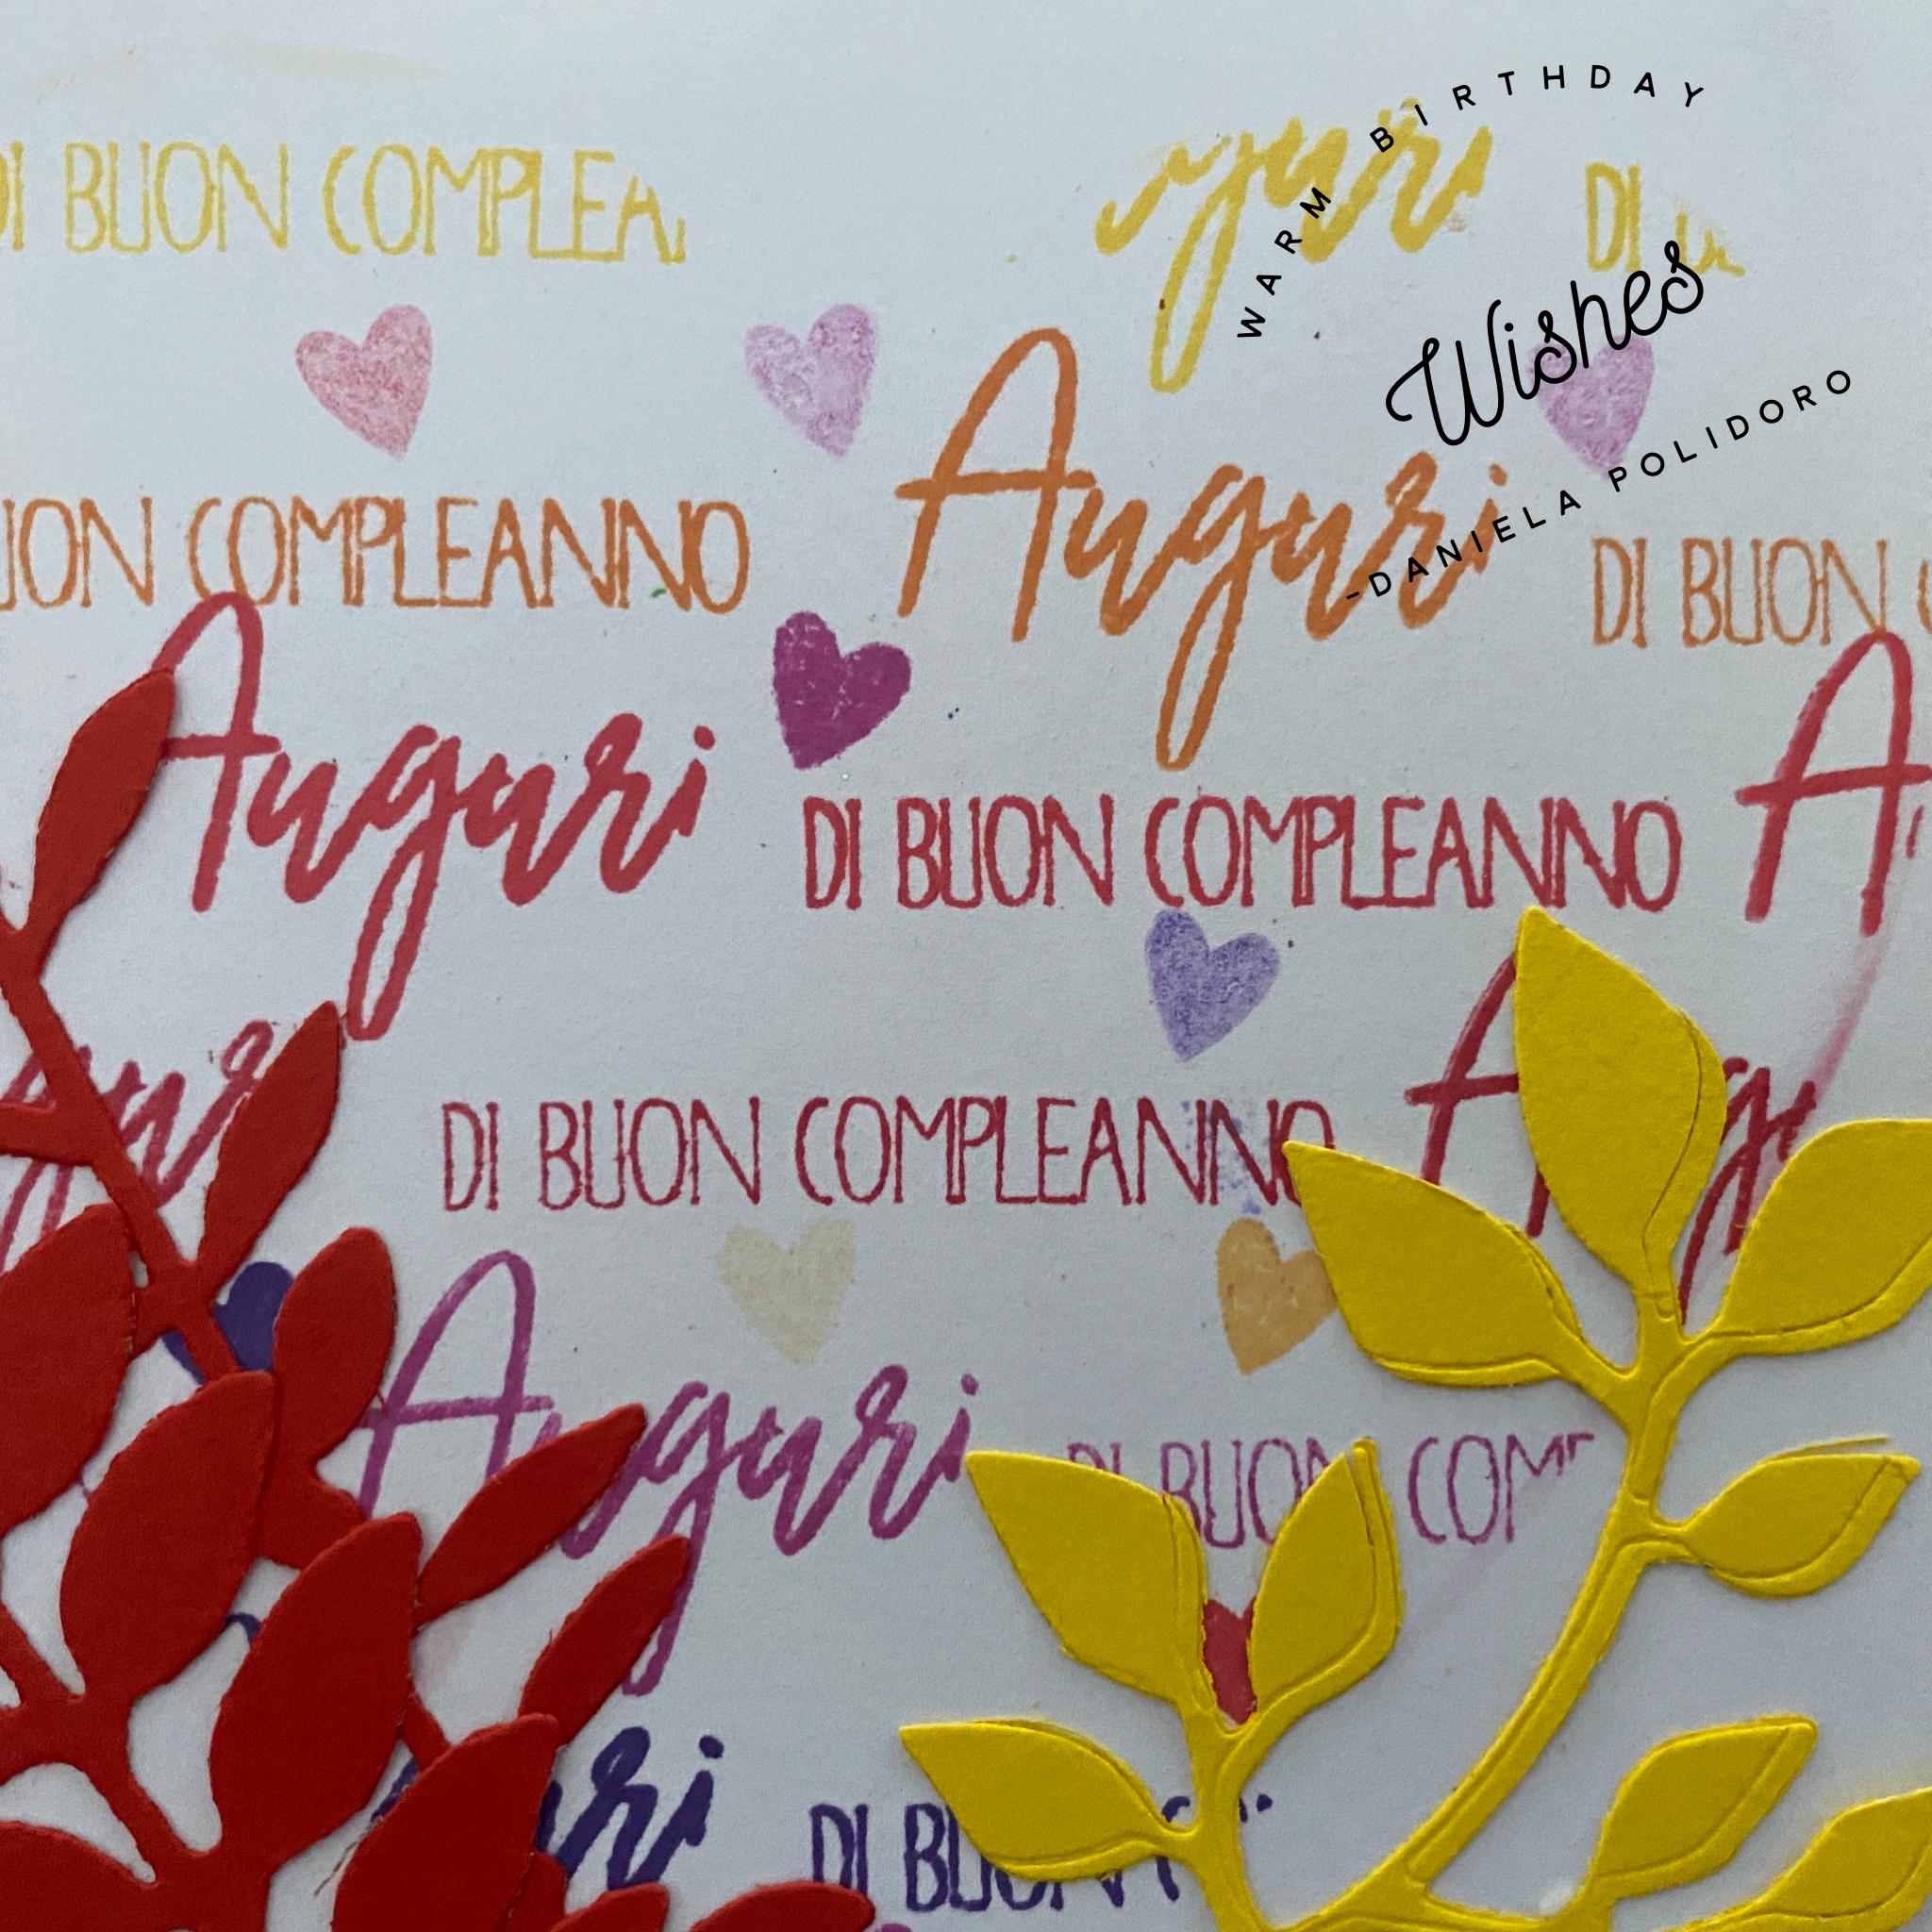 WARM BIRTHDAY
Wishes
-DANIELA POLIDORO
DI BUON COMPLEA
DI
COMPLEANNO
Auguri
DI BUON
Auguri
DI BUON COMPLEANNO
DI BUON COMPLEANNO
Auguri
DI BUON COM
DI